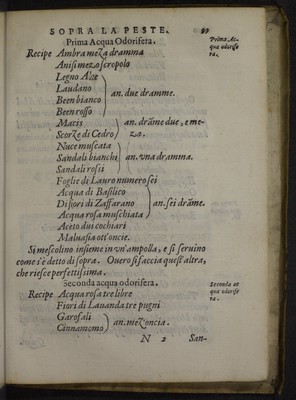 SOPRA LA PESTE. 99
Prima Acqua Odorifera.
Prima Ac-
qua odorife
ra.
Recipe Ambra meza dramma
Anisi mezo scropolo
Legno Aloe
Laudano
Been bianco
Been rosso
an. due dramme.
Macis
Scorze di Cedro
an. drāme due, e me-
za.
Nuce muscata
Sandali bianchi
Sandali rossi
an. vna dramma.
Foglie di Lauro numero sei
Acqua di Basilico
Di fiori di Zaffarano
Acqua rosa muschiata
an. sei drāme.
Aceto dui cochiari
Maluasia ott'oncie.
Si mescolino insieme in vn'ampolla, e si seruino
come s'è detto di sopra. Ouero si faccia quest'altra,
che riesce perfettissima.
Seconda acqua odorifera.
Seconda ac
qua odorife
ra.
Recipe Acqua rosa tre libre
Fiori di Lauanda tre pugni
Garofali
Cinnamomo
an. mez'oncia.
N 2 San-